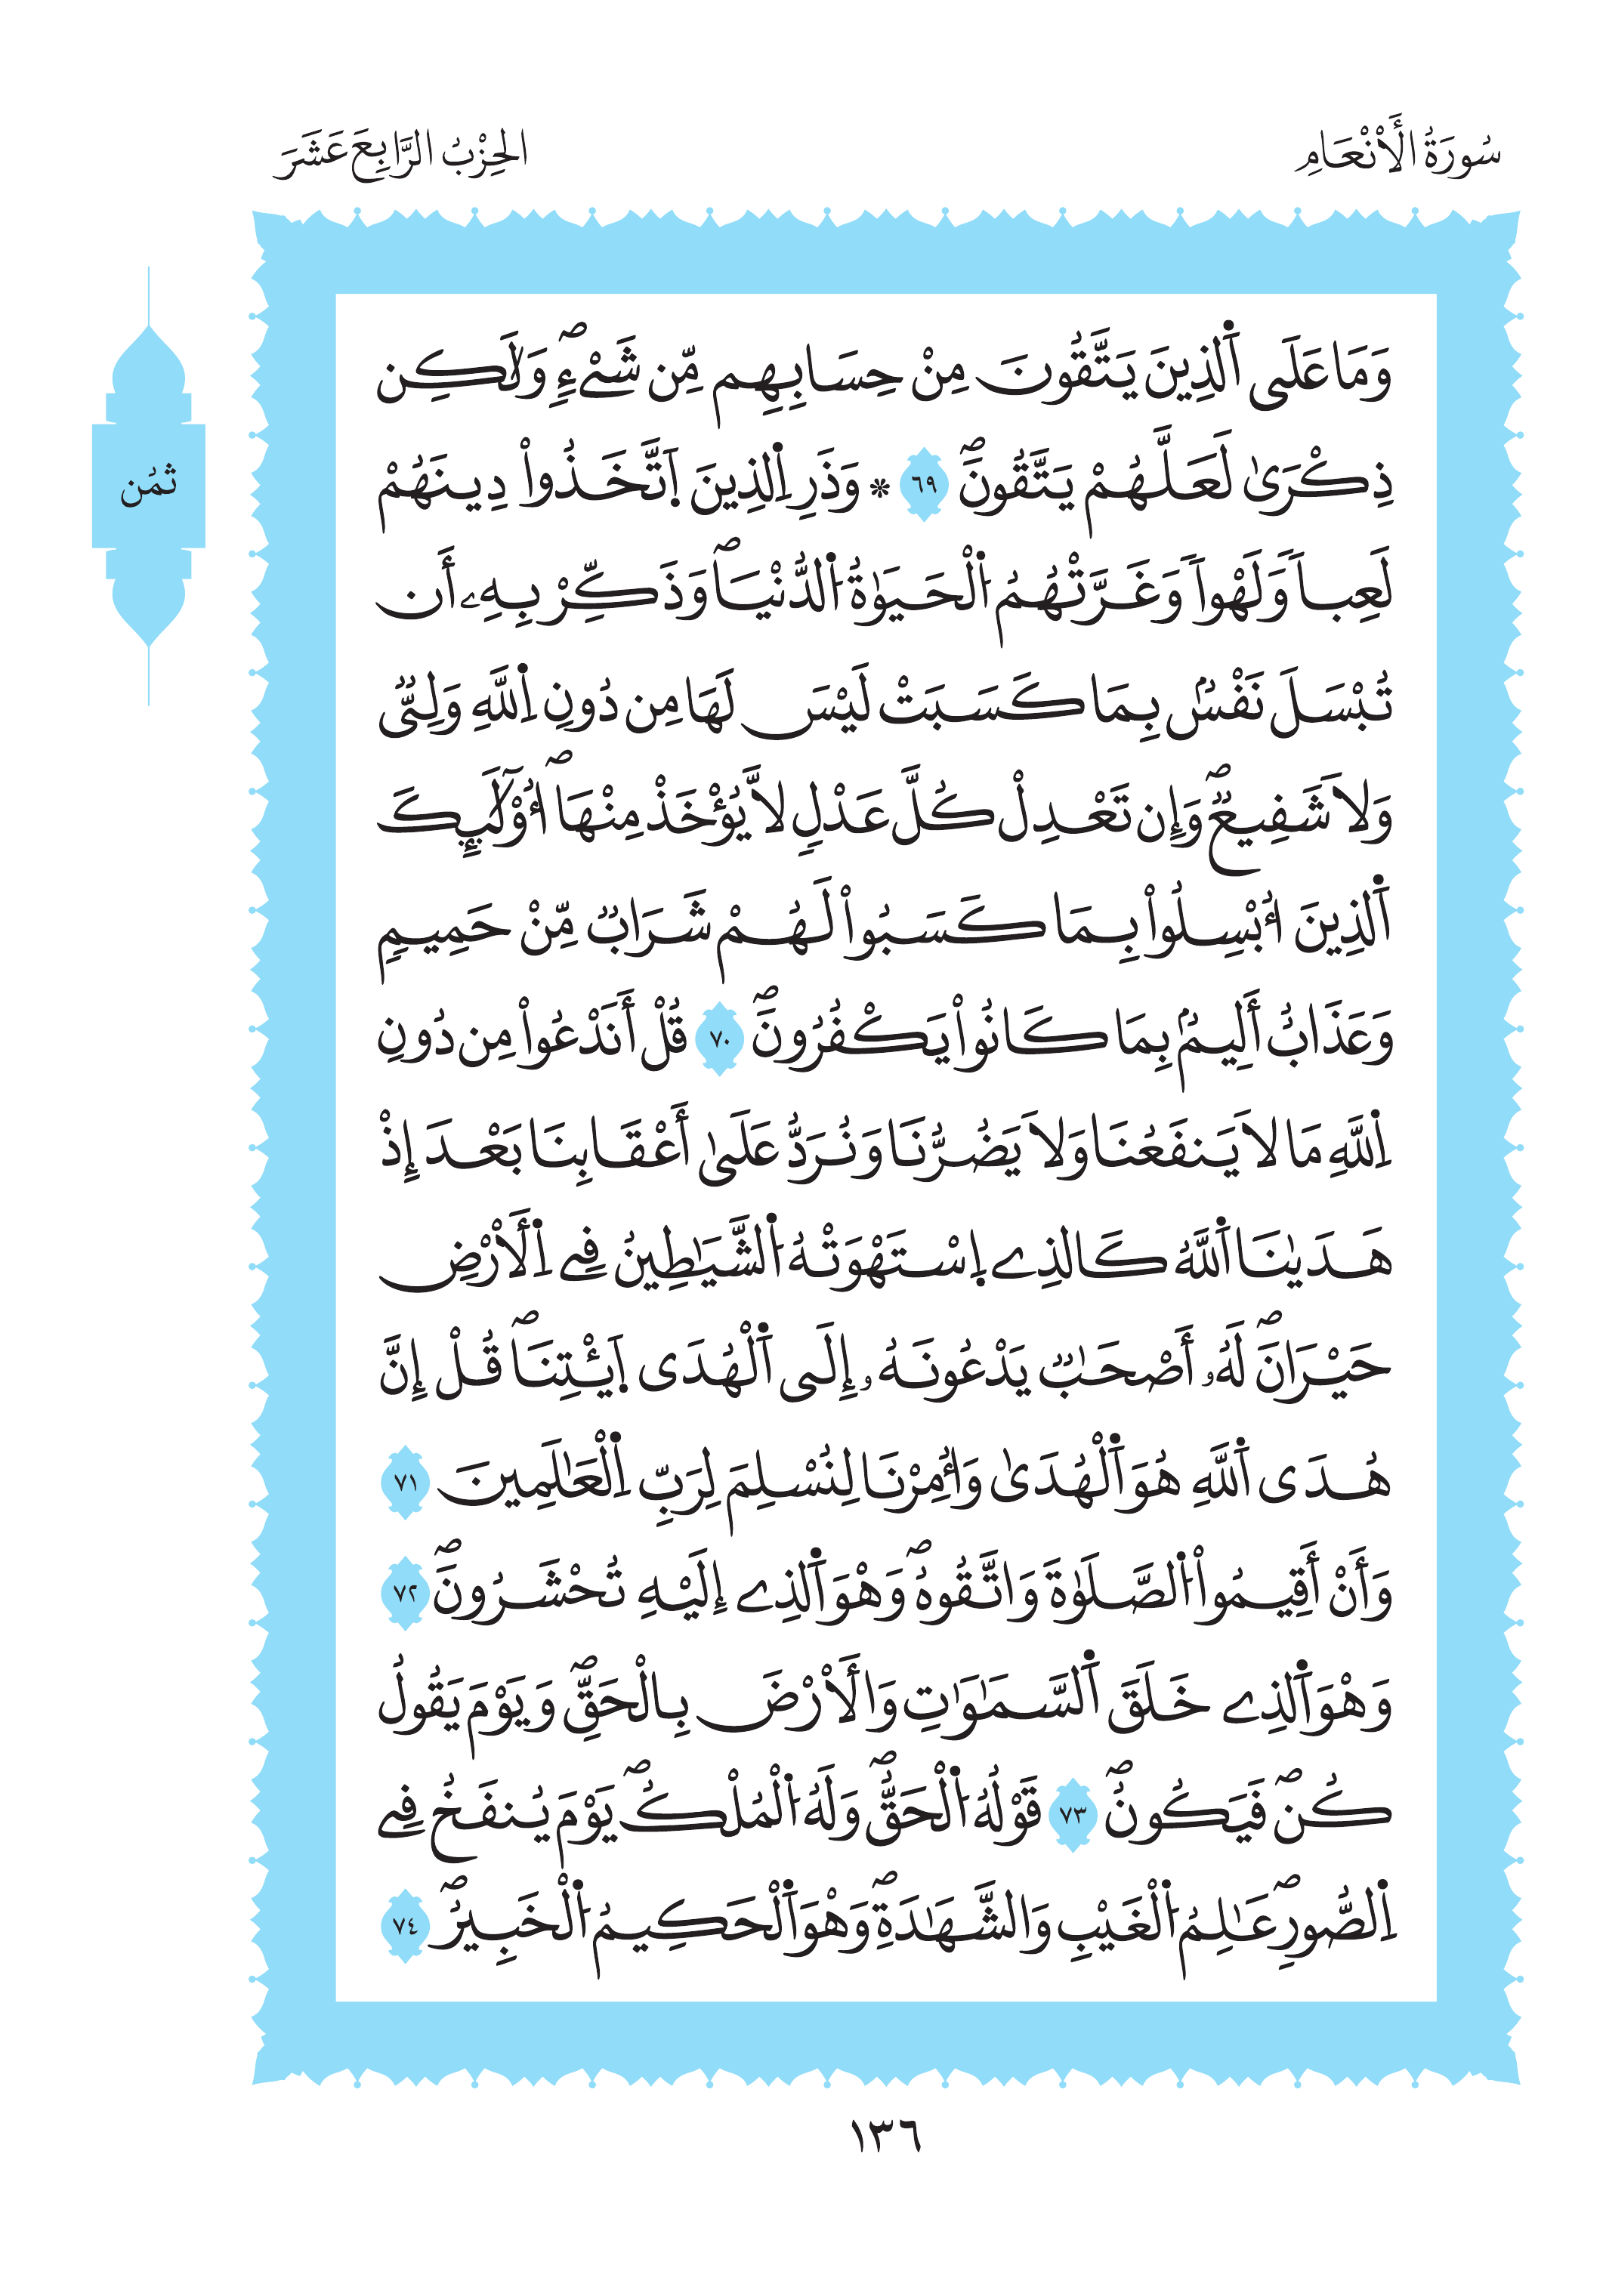 سُورَةُ الْأَنْعَامِ
الحِزْبُ الرَّابِعَ عَشَرَ
ثُمُن
وَمَا عَلَى اَ۬لذِينَ يَتَّقُونَ مِنْ حِسَابِهِم مِّن شَےْءٖۖ وَلَٰكِن
ذِكْر۪ىٰ لَعَلَّهُمْ يَتَّقُونَۖ ٦٩ * وَذَرِ اِ۬لذِينَ اَ۪تَّخَذُواْ دِينَهُمْ
لَعِباٗ وَلَهْواٗ وَغَرَّتْهُمُ اُ۬لْحَيَوٰةُ اُ۬لدُّنْي۪اۖ وَذَكِّرْ بِهِۦ أَن
تُبْسَلَ نَفْسُۢ بِمَا كَسَبَتْ لَيْسَ لَهَا مِن دُونِ اِ۬للَّهِ وَلِيّٞ
وَلَا شَفِيعٞۖ وَإِن تَعْدِلْ كُلَّ عَدْلٖ لَّا يُؤْخَذْ مِنْهَاۖ أُوْلَٰٓئِكَ
اَ۬لذِينَ أُبْسِلُواْ بِمَا كَسَبُواْ لَهُمْ شَرَابٞ مِّنْ حَمِيمٖ
وَعَذَابٌ أَلِيمُۢ بِمَا كَانُواْ يَكْفُرُونَۖ ٧٠ قُلْ أَنَدْعُواْ مِن دُونِ
اِ۬للَّهِ مَا لَا يَنفَعُنَا وَلَا يَضُرُّنَا وَنُرَدُّ عَلَىٰ أَعْقَابِنَا بَعْدَ إِذْ
هَدَيٰنَا اَ۬للَّهُ كَالذِے اِ۪سْتَهْوَتْهُ اُ۬لشَّيَٰطِينُ فِے اِ۬لْأَرْضِ
حَيْرَانَۖ لَهُۥ أَصْحَٰبٞ يَدْعُونَهُۥ إِلَى اَ۬لْهُدَى اَ۪ئْتِنَاۖ قُلْ إِنَّ
هُدَى اَ۬للَّهِ هُوَ اَ۬لْهُدَىٰ وَأُمِرْنَا لِنُسْلِمَ لِرَبِّ اِ۬لْعَٰلَمِينَ ٧١
وَأَنْ أَقِيمُواْ اُ۬لصَّلَوٰةَ وَاتَّقُوهُۖ وَهْوَ اَ۬لذِے إِلَيْهِ تُحْشَرُونَۖ ٧٢
وَهْوَ اَ۬لذِے خَلَقَ اَ۬لسَّمَٰوَٰتِ وَالْأَرْضَ بِالْحَقِّۖ وَيَوْمَ يَقُولُ
كُنۖ فَيَكُونُۖ ٧٣ قَوْلُهُ اُ۬لْحَقُّۖ وَلَهُ اُ۬لْمُلْكُۖ يَوْمَ يُنفَخُ فِے
اِ۬لصُّورِۖ عَٰلِمُ اُ۬لْغَيْبِ وَالشَّهَٰدَةِۖ وَهْوَ اَ۬لْحَكِيمُ اُ۬لْخَبِيرُۖ ٧٤
١٣٦